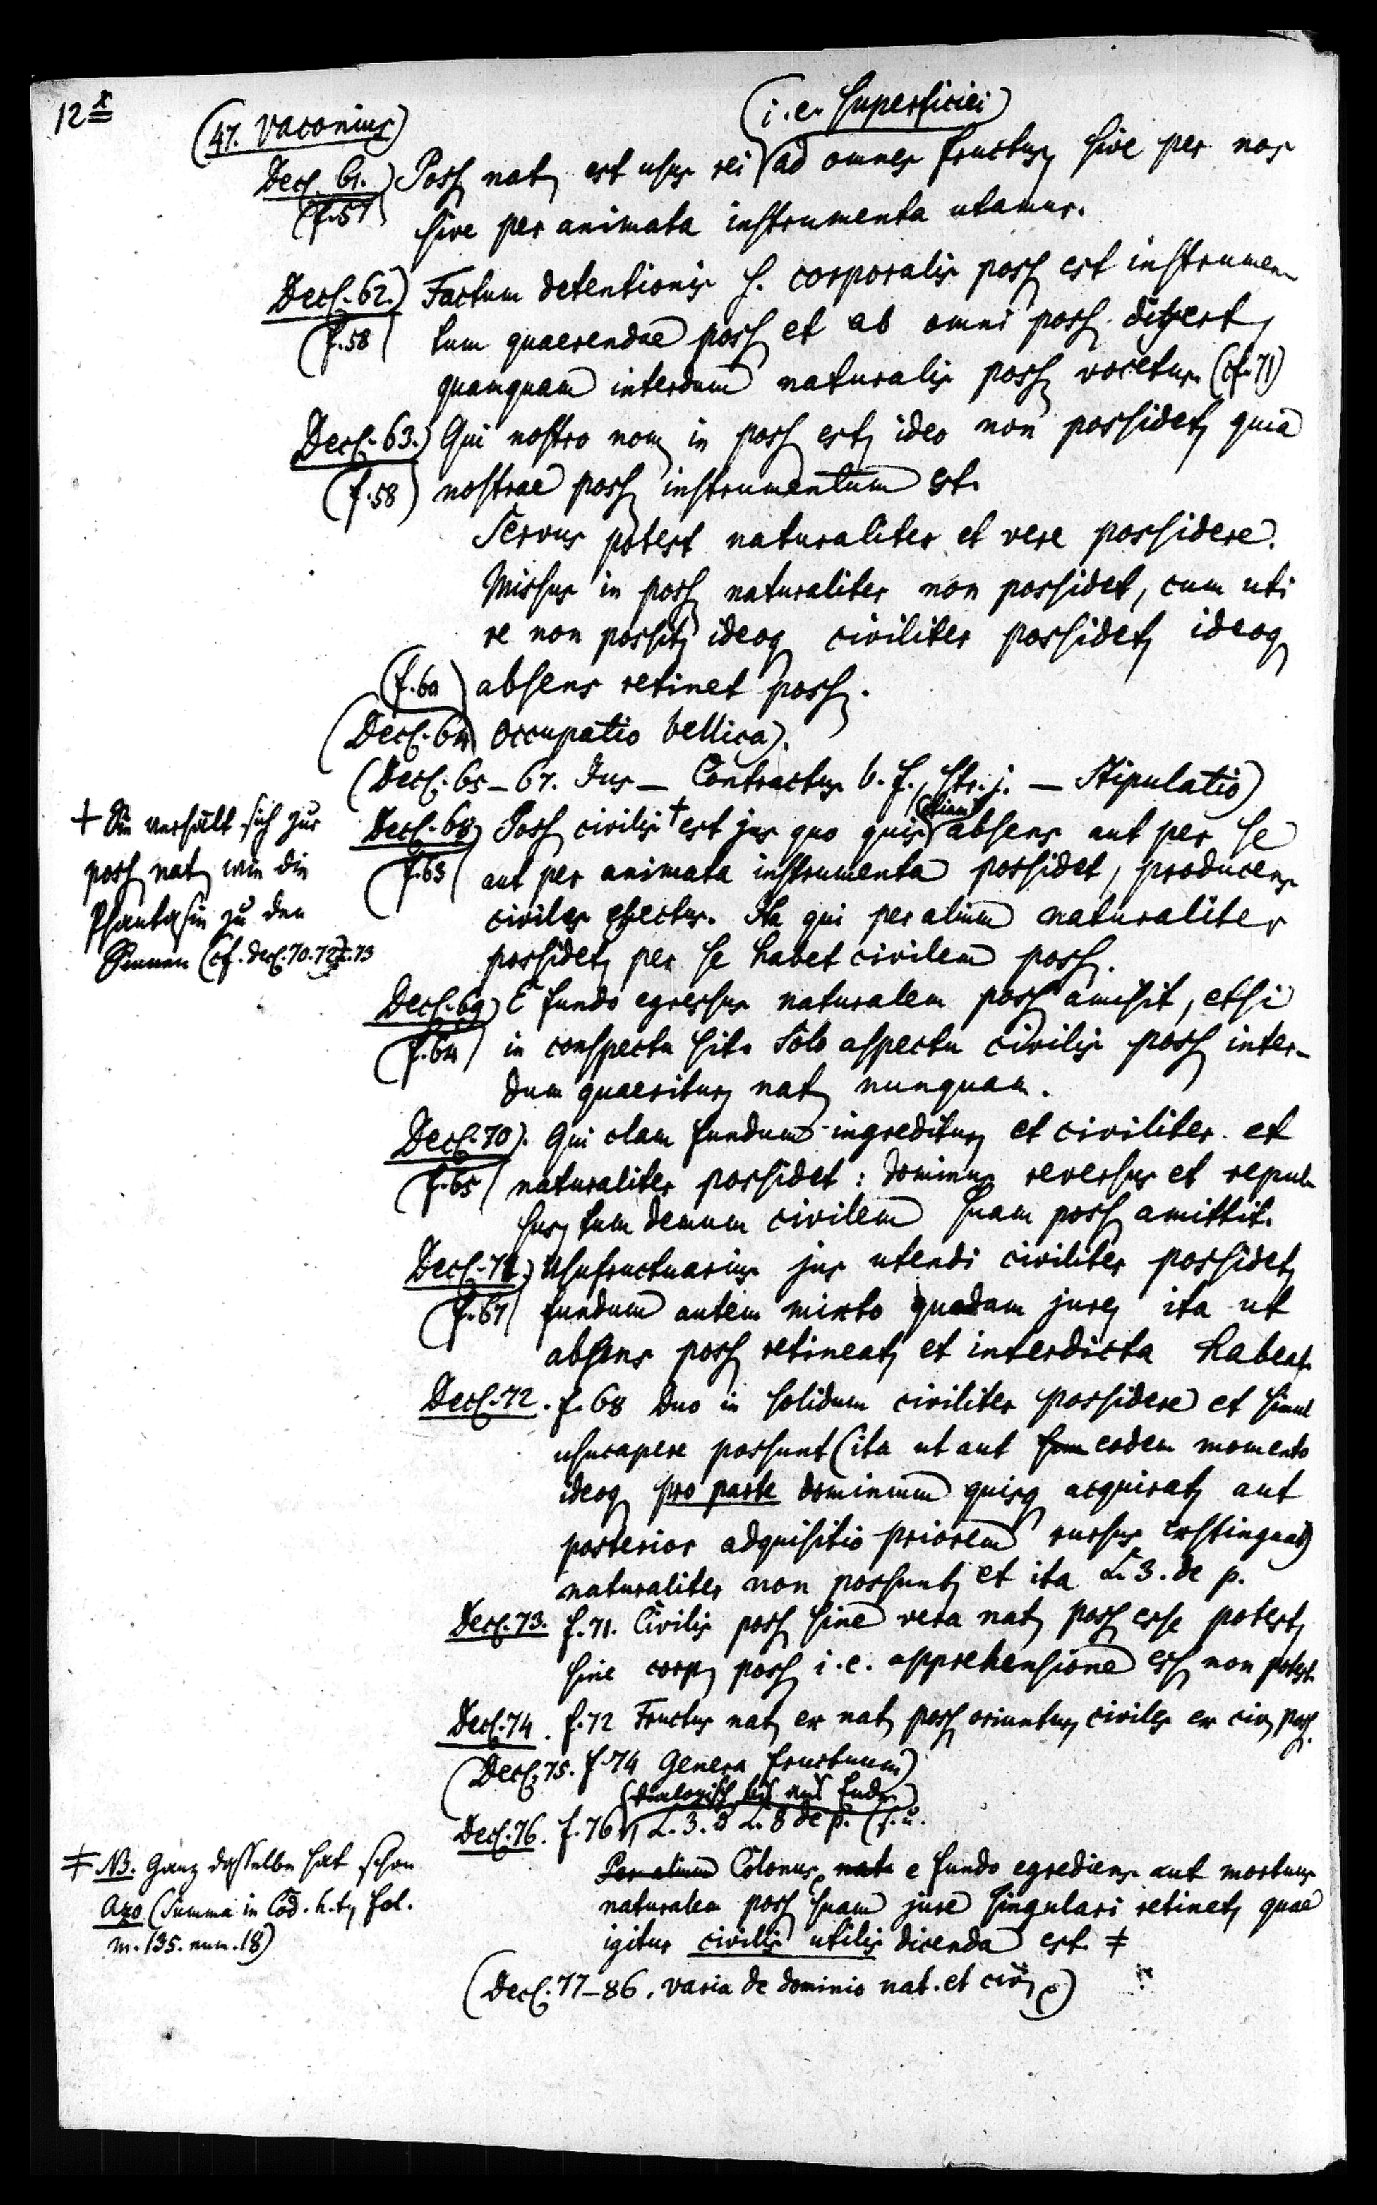 12 x
(47. Vaconius)
(i.e. superficiei)
Decl. 61.) Poss nat est usus rei ad omnes fructus, sive per nos
(f. 57) sive per animata instrumenta utamur.
Decl. 62.) Factum detentionis s. corporalis poss est instrumen-
(f. 58) tum quaerendae poss et ab omni poss. differt,
quamquam interdum naturalis poss vocetur (cf. 71)
Decl. 63.) Qui nostro nom in poss est, ideo non possidet, quia
(f. 58) nostrae poss instrumentum est.
Servus potest naturaliter et vere possidere.
Missus in poss naturaliter non possidet, cum uti
re non possit, ideoq civiliter possidet, ideoq
(f. 60) absens retinet poss.
(Decl. 64 occupatio bellica).
(Decl. 65–67. Jus – Contractus b. f., str. j. – Stipulatio)
Decl. 68) Poss civilis + est jus quo quis (etiam) absens aut per se
(f. 63) aut per animata instrumenta possidet, producens
civiles effectus. Ita qui per alium naturaliter
possidet, per se habet civilem poss.
+ Sie verhält sich zur
poss nat, wie die
Phantasie zu den
Sinnen (cf. decl. 70. 72 f. 73
Decl. 69) E fundo egressus naturalem poss amisit, etsi
(f. 64) in conspectu sit. Solo aspectu civilis poss inter-
dum quaeritur, nat nunquam.
Decl. 70). Qui clam fundum ingreditur, et civiliter et
(f. 65) naturaliter possidet: dominus reversus et repul-
sus, tum demum civilem suam poss amittit.
Decl. 71.) Usufructuarius jus utendi civiliter possidet,
(f. 67) fundum autem mixto quodam jure, ita ut
absens poss retineat, et interdicta habeat.
Decl. 72. f. 68 Duo in solidum civiliter possidere et simul
usucapere possunt (ita ut aut eodem momento
ideoq pro parte dominium quisq acquirat, aut
posterior adquisitio priorem rursus exstinguat)
naturaliter non possunt, et ita L. 3. de p.
Decl. 73. f. 71. Civilis poss sine vera nat poss esse potest,
sine corp poss i.e. apprehensione ess non potest.
Decl. 74. f. 72 Fructus nat ex nat poss oriuntur, civiles ex civ poss.
(Decl. 75. f. 74 Genera fructuum)
(dialogisch bis ans Ende)
Decl. 76. f. 76 L. 3. & L. 8 de p. (s. u.
Per alium Colonus, nat e fundo egrediens aut mortuus
naturalem poss suam jure singulari retinet, quae
igitur civilis utilis dicenda est. ‡
‡ NB. Ganz dasselbe hat schon
Azo (Summa in Cod. h. t., fol.
m. 135. num. 18)
(Decl. 77–86. varia de dominio nat. et civ)